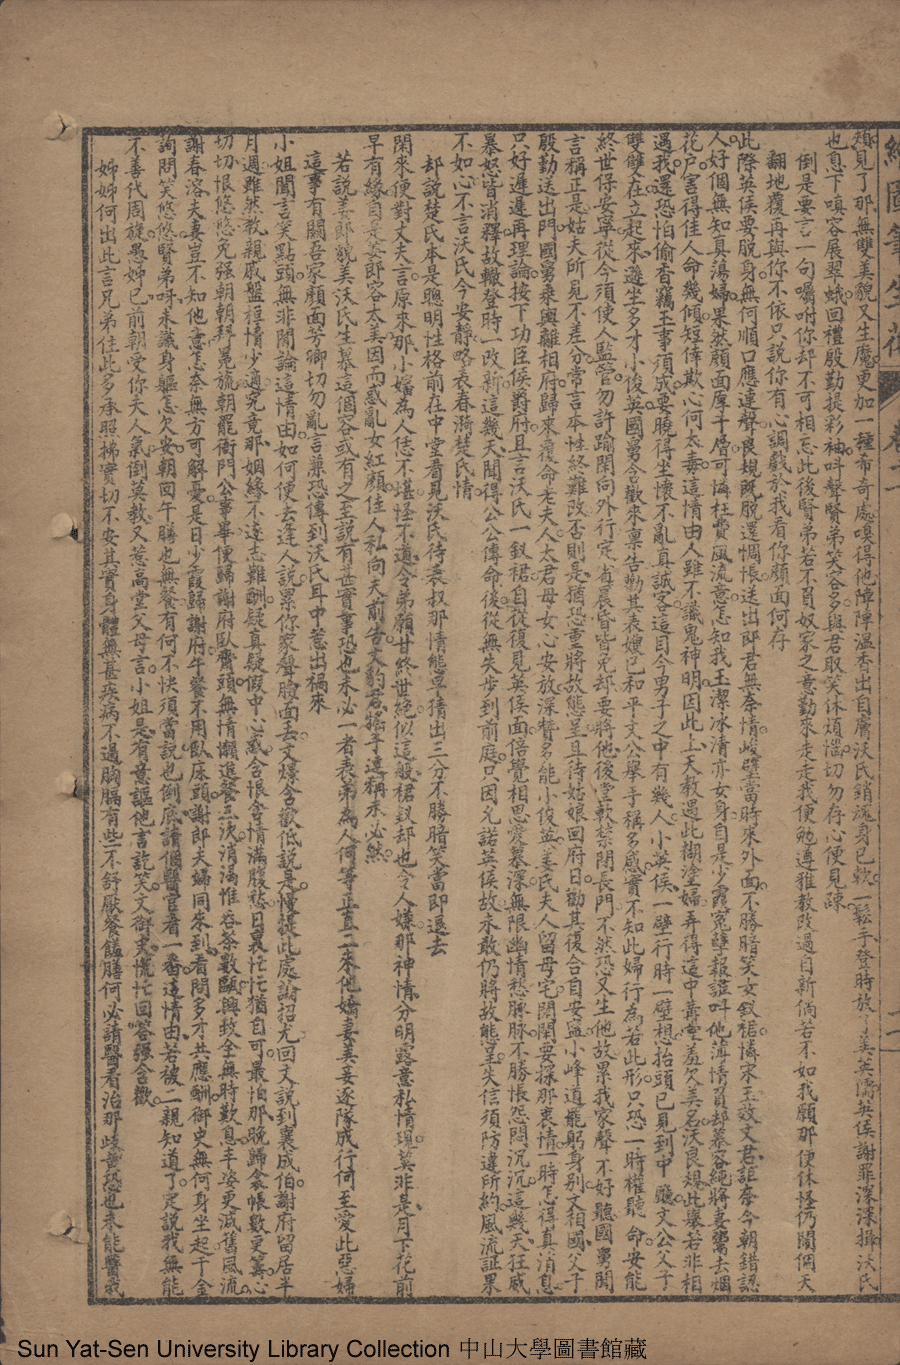 繪圖筆生花 卷十一 二
頰見了那無雙美貌又生魔更加一種希奇處嗅得他陣陣溫香出自膚沃氏銷魂身已軟一鬆手登時放了美英濡英侯謝罪深深揖沃氏
也息下嗔容展翠蛾回禮殷勤提彩袖叫聲賢弟笑容多與君取笑休煩惱切勿存心便見疎
倒是要言一句囑咐你却不可相忘此後賢弟若不負奴家之意勤來走走我便勉遵雅教改過自新倘若不如我願那便休怪仍鬧個天
翻地覆再與你不依只說你有心調戲於我看你顏面何存
此際英侯要脫身無何順口應連聲良規既脫還惆悵送出郎君無奈情峻壁當時來外面不勝暗笑女釵裙憐宋玉效文君詎奈今朝錯認
人好個無知真蕩婦果然顏面厚千層可憐枉費風流意怎知我玉潔冰清亦女身自是少霞冤孽報謊叫他薄情負却慕容繩將妻鬻去烟
花戶害得佳人命幾傾短倖欺心何太毒這情由人雖不識鬼神明因此上天教遇此糊塗婦弄得這中冓牽羞欠美名沃良規此舉若非相
遇我還恐怕偷香竊玉事須成要曉得坐懷不亂真誠客這目今男子之中有幾人小英侯一壁行時一壁想抬頭已見到中廳文公父子
雙雙在立起來遜坐多才小俊英國舅含歡來稟告勸其表嫂已和平文公舉手稱多感實不知此婦行為若此形只恐一時權聽命安能
終世保安寧從今須使人監管勿許踰閑向外行定省晨昏皆免却要將他後堂軟禁閉長門不然恐又生他故累我家聲不好聽國舅聞
言稱正是姑夫所見不差分常言本性終難改否則是猶恐重將故態呈且待姑娘回府日勸其復合自安寧小峰道罷躬身別文相國父子
殷勤送出門國舅乘輿離相府歸來覆命老夫人太君母女心安放深贊多能小俊英姜氏夫人留母宅閑閑要探那衷情一時怎得真消息
只好遲遲再理論按下功臣侯爵府且言沃民一釵裙自從復見英侯面倍覺相思愛慕深無限幽情愁脈脈不勝悵怨悶沉沉這幾天狂威
暴怒皆消釋故轍登時一改新這幾天聞得公公傳命後從無失步到前庭只因允諾英侯故未敢仍將故態呈失信須防違所約風流証果
不如心不言沃氏今安靜略表春漪楚氏情
却說楚氏本是聰明性格前在中堂看見沃氏待表叔那情態早猜出三分不勝暗笑當即退去
閑來便對丈夫言原來那小嬸為人恁不堪怪不道令弟願甘終世絕似這般裙釵却也令人嫌那神情分明露意私情現莫非是月下花前
早有緣自是姜郎容太美因而惑亂女紅顏佳人私向夫前告文豹君搖手連稱未必然
若說姜郎貌美沃氏生慕這個容或有之至說有甚實事恐也未必一者表弟為人何等正直二來他嬌妻美妾逐隊成行何至愛此惡婦
這事有關吾家顏面芳卿切勿亂言兼恐傳到沃氏耳中惹出禍來
小姐聞言笑點頭無非閑論這情由如何便去逢人說累你家聲股面丟文爆含歡低說是慢提此處謝招尤回文說到襄成伯謝府留居半
月週雖然教親戚盤桓情少適究竟那姻緣不遂志難酬疑真疑假中心惑含恨含情滿腹愁日裏忙忙猶自可最怕那晚歸衾帳數更籌心
切切恨悠悠免强朝朝拜冕旒朝罷衙門公事畢便歸謝府臥齊頭無情懶進餐三次消渴惟容茶數甌興致全無時歎息丰姿更減舊風流
謝春溶夫妻豈不知他意怎奈無方可解憂是日少霞歸謝府午餐不用臥床頭謝郎夫婦同來到看問多才共應酬御史無何身坐起千金
詢問笑悠悠賢弟呀未識身軀怎欠安朝回午膳也無餐有何不快須當說也倒底請個醫官看一番這情由若被二親知道了定說我無能
不善代周旋愚姊已前朝受你夫人氣倒莫教又惹高堂父母言小姐是有意謳他言訖笑文御史慌忙回答强含歡
姊姊何出此言兄弟住此多承照拂實切不安其實身體無甚疾病不過胸膈有些不舒厭餐饈膳何必請醫看治那歧黃恐也未能醫我
Sun Yat-Sen University Library Collection 中山大學圖書館藏